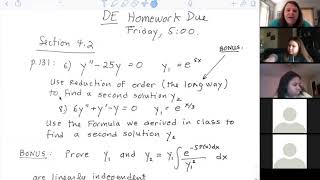 DE Homework Due
Friday, 5:00.
Section 4.2
BONUS:
p.131: 6) y"-25y=0 y₁=e^5x
Use Reduction of order (the long way)
to find a second solution y₂
8) 6y"+y'-y=0 y₁=e^x/3
Use the Formula we derived in class to
find a second solution y₂
BONUS: Prove y₁ and y₂=y₁∫ e^-∫P(x)dx / y₁² dx
are linearly independent